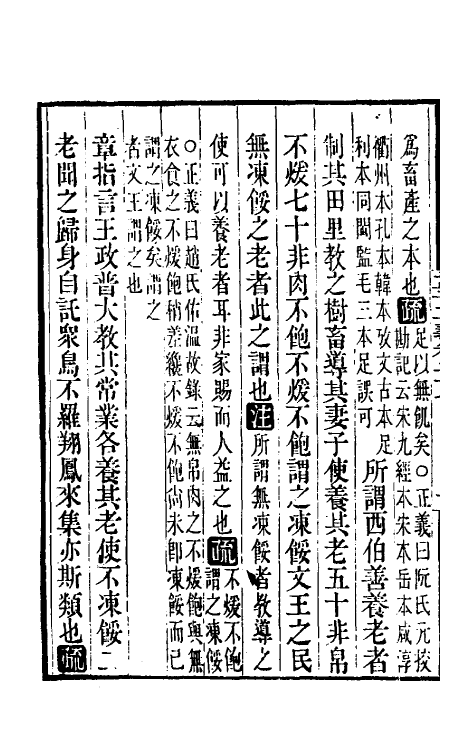 爲畜產之本也疏足以無飢矣○正義曰阮氏元挍
勘記云宋九經本宋本岳本咸淳
衢州本孔本韓本攷文古本足
利本同閩監毛三本足誤可
所謂西伯善養老者
制其田里教之樹畜導其妻子使養其老五十非帛
不煖七十非肉不飽不煖不飽謂之凍餒文王之民
無凍餒之老者此之謂也注所謂無凍餒者教導之
使可以養老者耳非家賜而人益之也疏不煖不飽
謂之凍餒
○正義曰趙氏佑溫故錄云無帛肉之不煖飽與無
衣食之不煖飽稍差纔不煖不飽尚未卽凍餒而已
謂之凍餒矣謂之
者文王謂之也
章指言王政普大教其常業各養其老使不凍餒二
老聞之歸身自託衆鳥不羅翔鳳來集亦斯類也疏